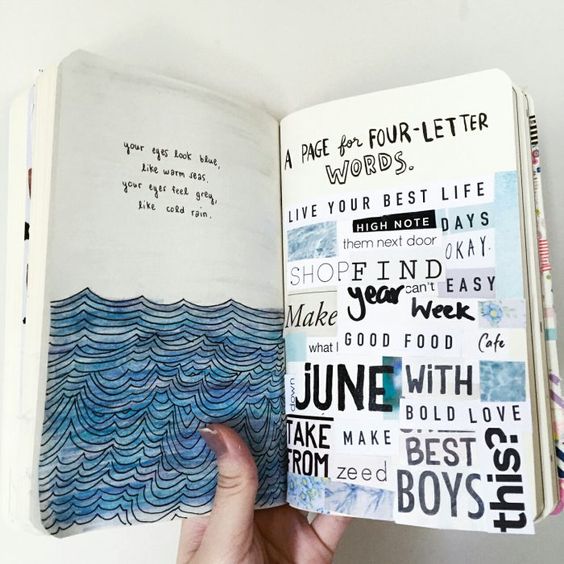 your eyes look blue,
like warm seas.
your eyes feel grey,
like cold rain.
A PAGE for FOUR-LETTER
WORDS.
LIVE YOUR BEST LIFE
HIGH NOTE
DAYS
them next door
OKAY.
SHOP
FIND
EASY
year
can't
Week
Make
what
GOOD FOOD
Cafe
down
JUNE
WiTH
BOLD LOVE
TAKE
FROM
MAKE
zeed
BEST
BOYS
this?